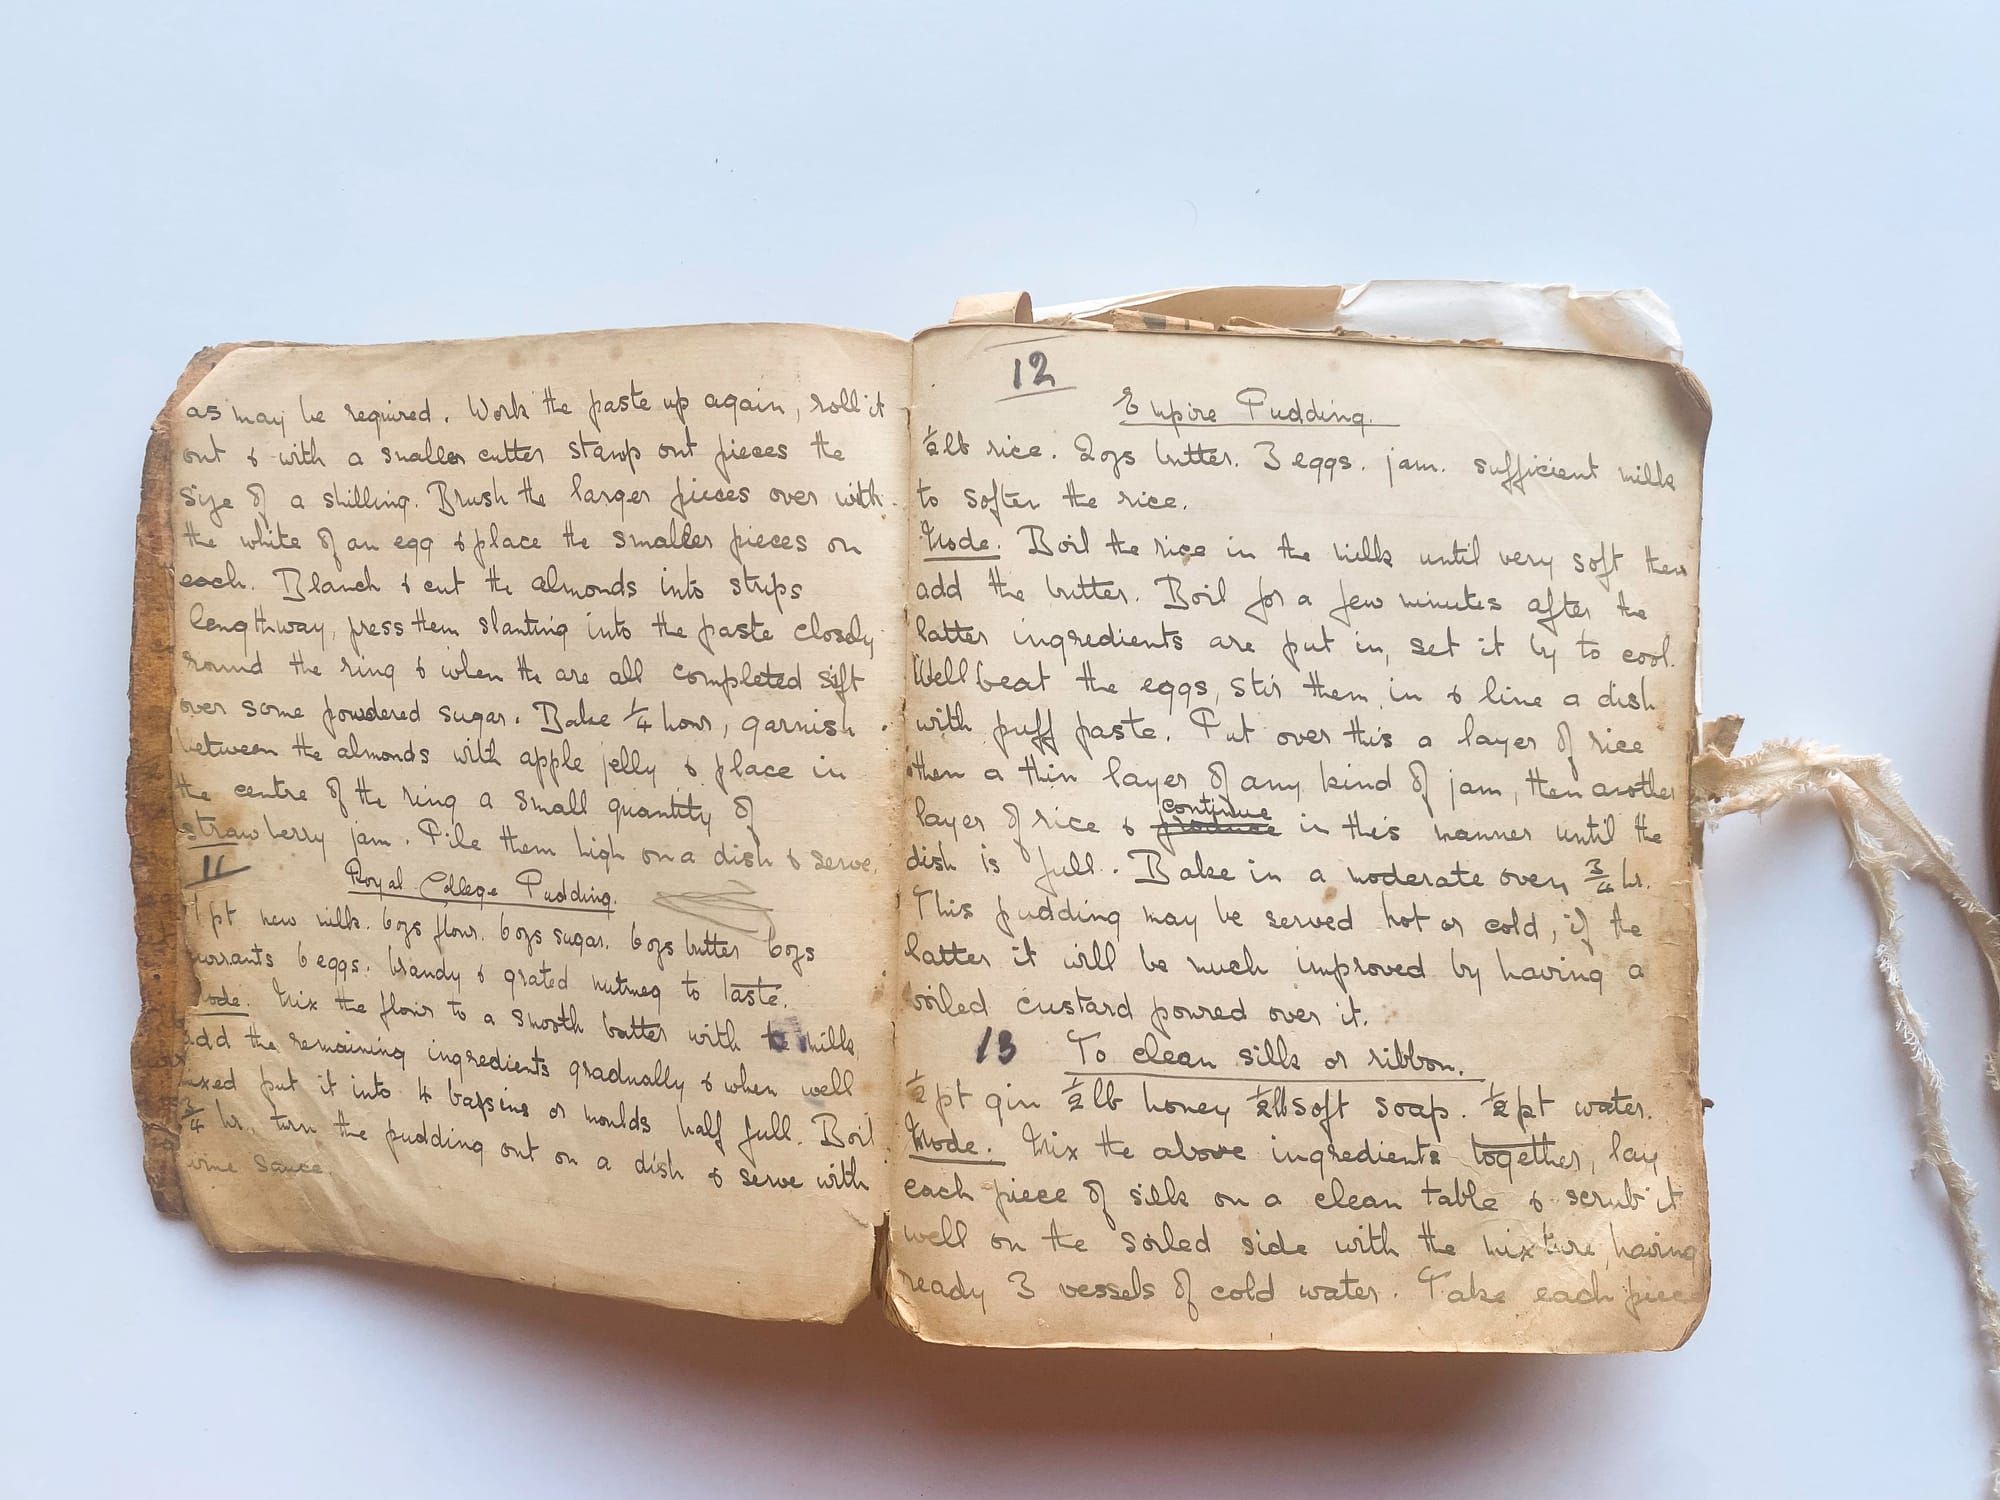 as may be required. Work the paste up again, roll it
out & with a smaller cutter stamp out pieces the
size of a shilling. Brush the larger pieces over with
the white of an egg & place the smaller pieces on
each. Blanch & cut the almonds into strips
lengthway, press them slanting into the paste closely
round the ring & when the are all completed sift
over some powdered sugar. Bake 1/4 hour, garnish
between the almonds with apple jelly & place in
the centre of the ring a small quantity of
strawberry jam. Pile them high on a dish & serve.
11
Royal College Pudding.
1 pt new milk. 6ozs flour. 6ozs sugar. 6ozs butter 6ozs
currants 6 eggs. brandy & grated nutmeg to taste.
Mode. Mix the flour to a smooth batter with the milk
add the remaining ingredients gradually & when well
mixed put it into 4 bassins or moulds half full. Boil
3/4 hr. turn the pudding out on a dish & serve with
wine sauce.
12
Empire Pudding.
1/2 lb rice. 2ozs butter. 3 eggs. jam. sufficient milk
to soften the rice.
Mode. Boil the rice in the milk until very soft then
add the butter. Boil for a few minutes after the
latter ingredients are put in, set it by to cool.
Well beat the eggs, stir them in & line a dish
with puff paste. Put over this a layer of rice
then a thin layer of any kind of jam, then another
continue
layer of rice & produce in this manner until the
dish is full. Bake in a moderate oven 3/4 hr.
This pudding may be served hot or cold, if the
latter it will be much improved by having a
boiled custard poured over it.
13 To clean silk or ribbon.
1/2 pt gin 1/2 lb honey 1/2 lb soft soap. 1/2 pt water.
Mode. Mix the above ingredients together, lay
each piece of silk on a clean table & scrub it
well on the soiled side with the mixture, having
ready 3 vessels of cold water. Take each piece